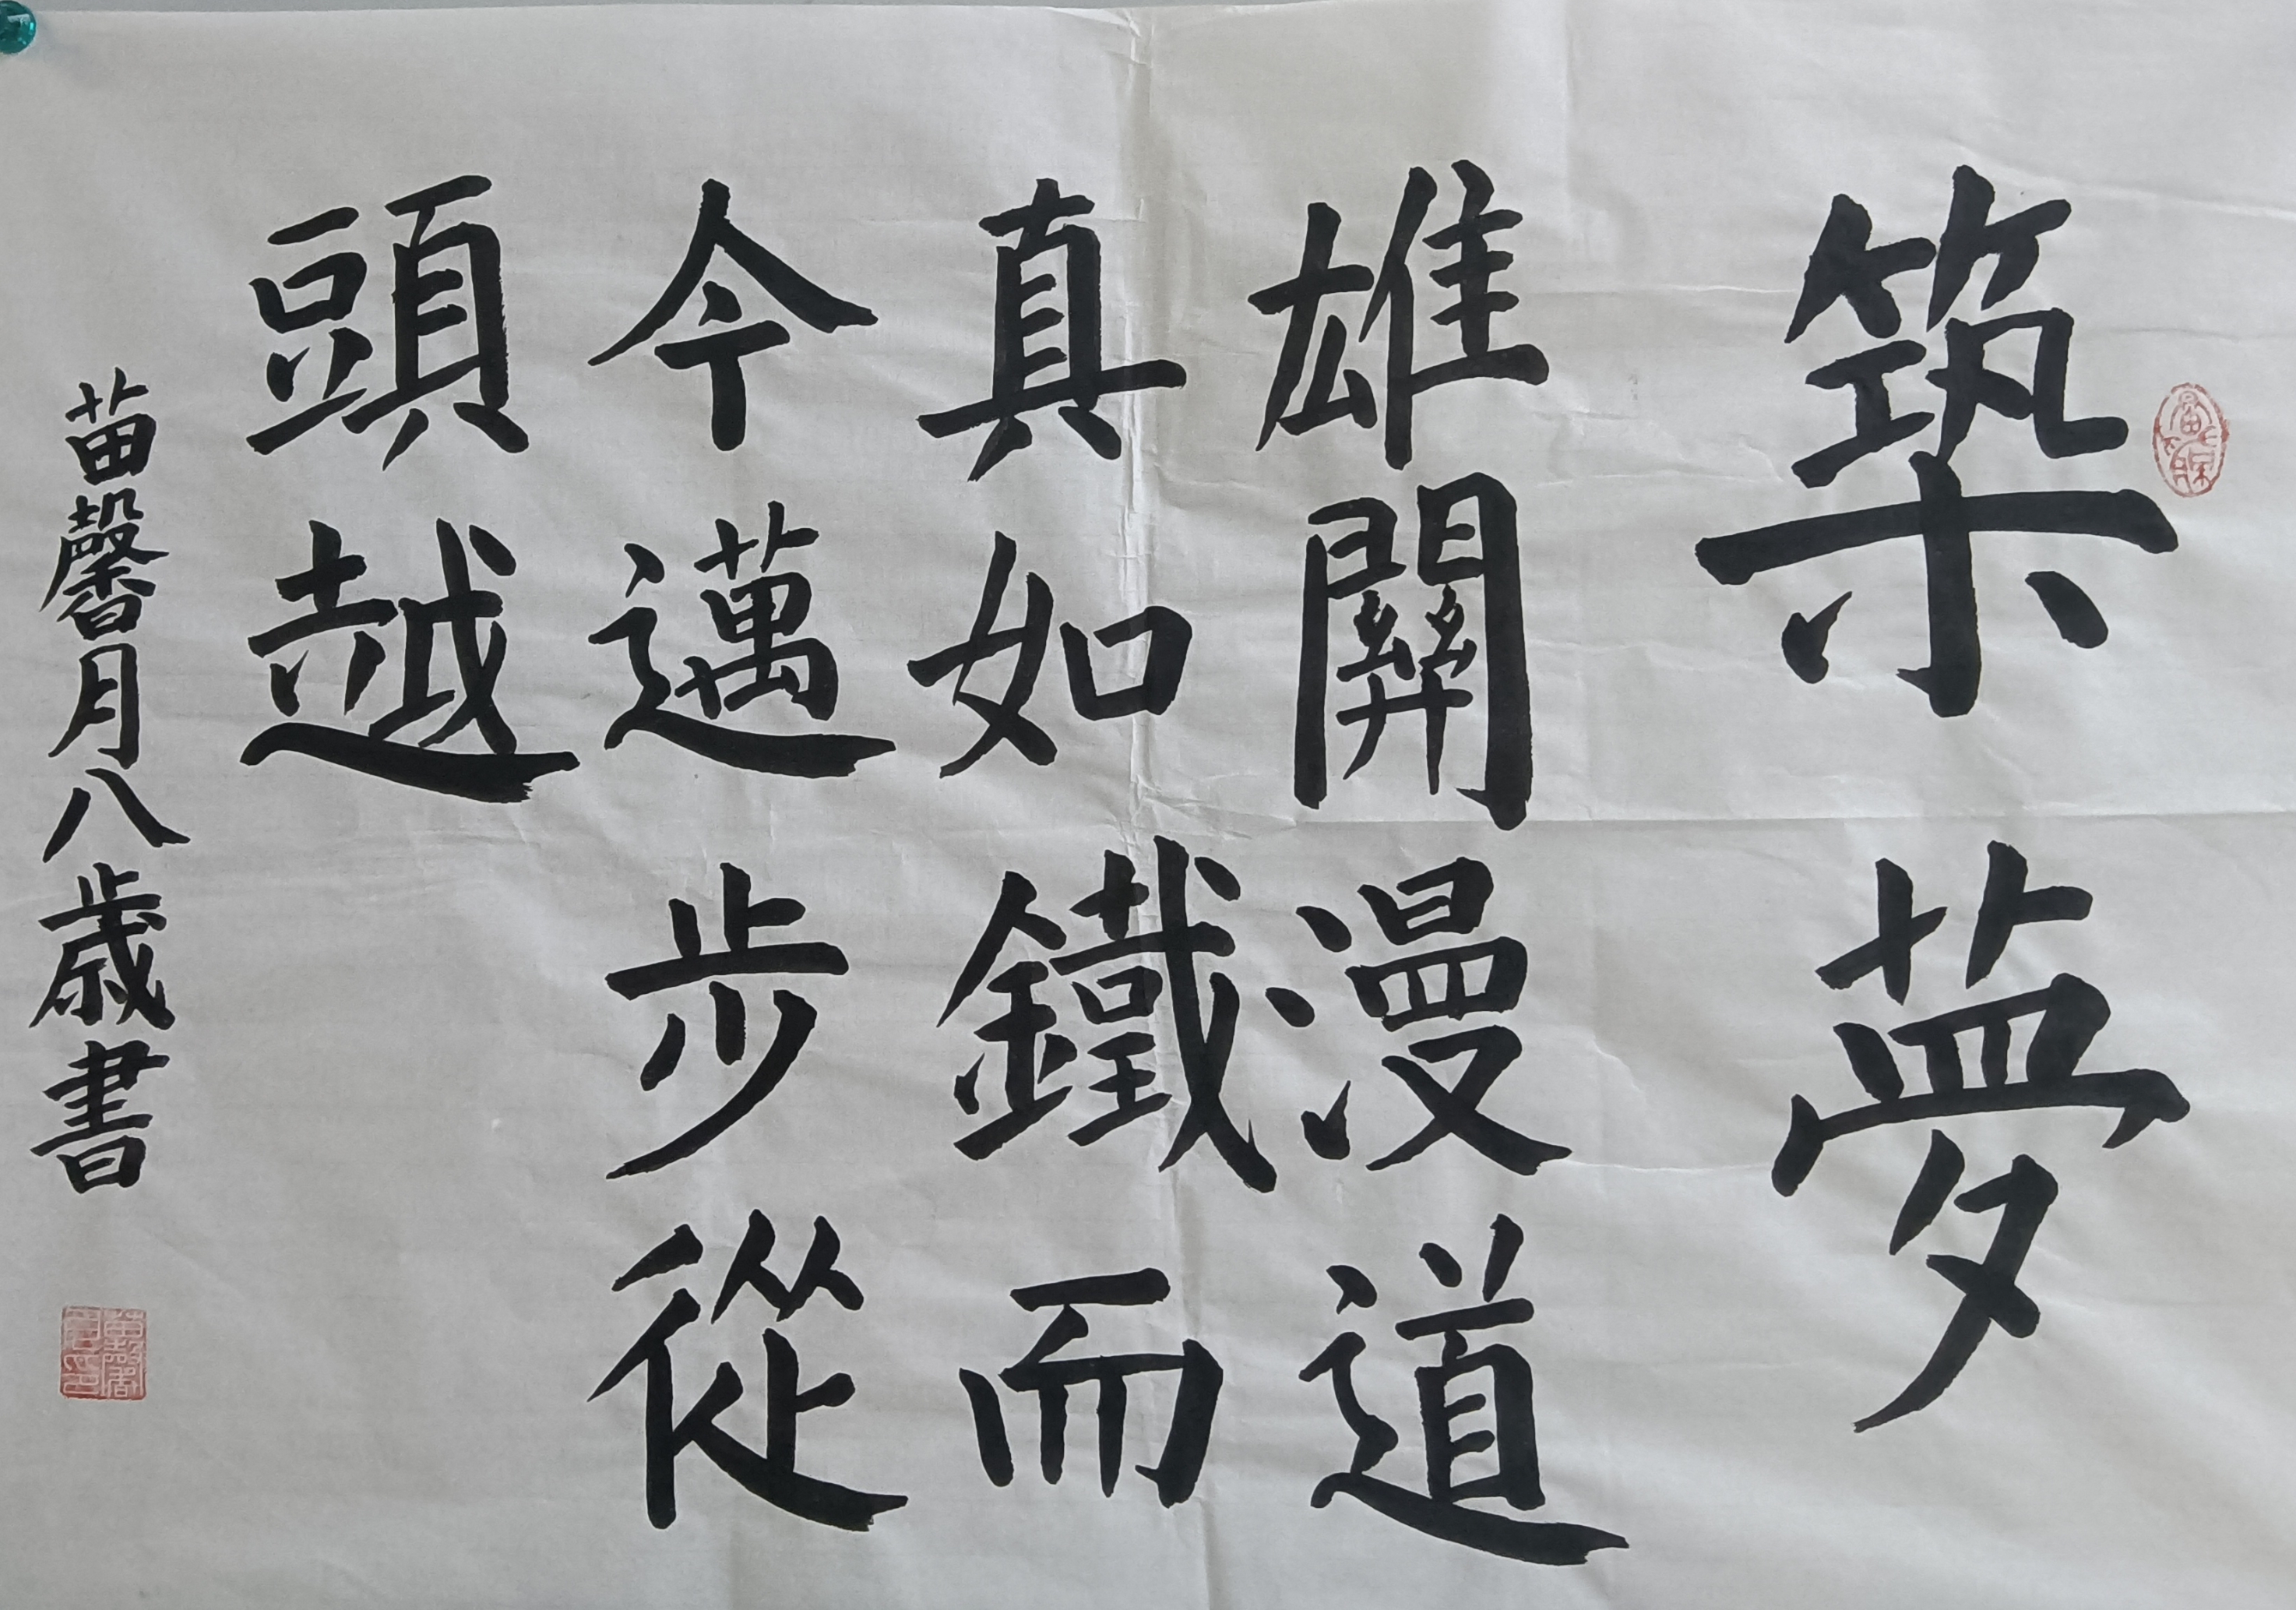 築夢
雄關漫道
真如鐵而
今邁步從
頭越
苗馨月八歲書